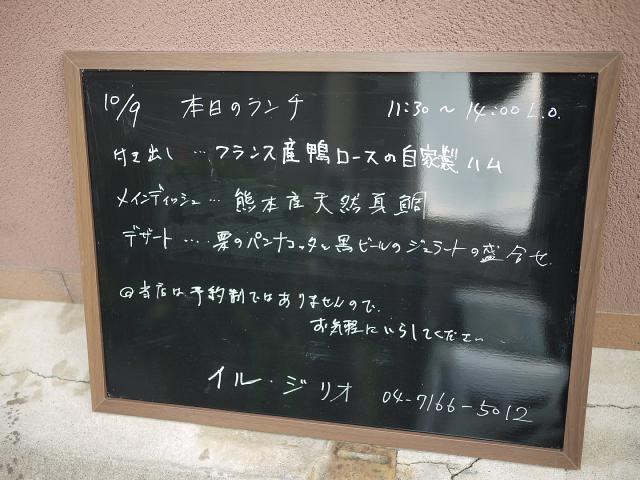 10/9 本日のランチ 11:30～14:00 L.O.
付き出し…フランス産鴨ロースの自家製ハム
メインディッシュ…熊本産天然真鯛
デザート‥‥栗のパンナコッタと黒ビールのジェラートの盛合せ
当店は予約制ではありませんので、
お気軽にいらしてください
イル・ジリオ 04-7166-5012